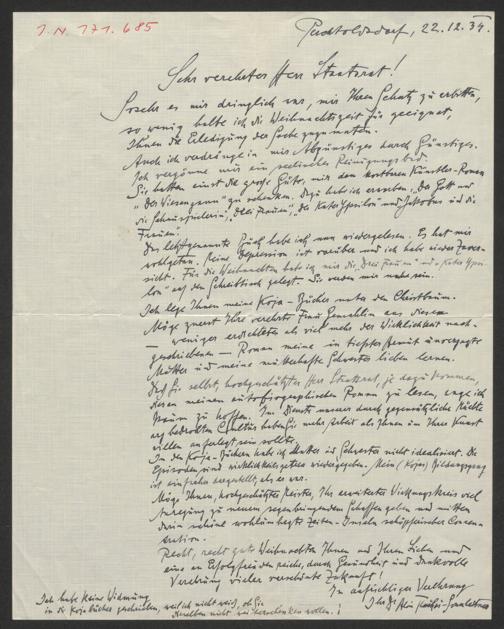 I.N. 171.685
Perchtoldsdorf, 22.12.34.
Sehr verehrter Herr Staatsrat!
So sehr es mir dringlich war, mir Ihren Schutz zu erbitten,
so wenig halte ich die Weihnachtszeit für geeignet,
Ihnen die Erledigung der Sache zuzumuten.
Auch ich verdränge in mir Abgünstiges durch Günstiges.
Ich vergönne mir ein seelisches Reinigungsbad.
Sie hatten einst die große Güte, mir den kostbaren Künstler-Roman
"Der Wiesenzaun" zu schenken. Dazu hab ich erworben "Der Gott und
die Schauspielerin", "Drei Frauen", "Der Kater Ypsilon" und "Jakobus und die
Frauen".
Das letztgenannte Buch habe ich nun wiedergelesen. Es hat mir
wohlgetan. Meine Depression ist vorüber und ich habe wieder Zuver-
sicht. Für die Weihnachten hab ich mir die "Drei Frauen" und "Kater Ypsi-
lon" auf den Schreibtisch gelegt. Sie werden mir nahe sein.
Ich lege Ihnen meine Korja-Bücher unter den Christbaum.
Möge zuerst Ihre verehrte Frau Gemahlin aus diesem
— weniger erdichteten als viel mehr der Wirklichkeit nach-
geschriebenen — Roman meine in tiefster Armut
Mutter und meine Schwester lieben lernen.
Daß Sie selbst, hochgeschätzter Herr Staatsrat, je dazu kommen,
diesen meinen autobiographischen Roman zu lesen, wage ich
kaum zu hoffen. Im Dienste unserer durch gegensätzliche Mächte
arg bedrohten Cultur haben Sie mehr Arbeit als Ihnen um Ihrer Kunst
willen auferlegt sein sollte.
In den Korja-Büchern habe ich Mutter und Schwester nicht idealisiert. Die
Episoden sind wirklichkeitsgetreu wiedergegeben. Mein (Korjas) Bildungsgang
ist einfacher dargestellt, als er war.
Möge Ihnen, hochgeschätzter Meister, Ihr erweiterter Wirkungskreis viel
Anregung zu neuem segenbringenden Schaffen geben und mitten
darin schöne Zeiten-Inseln schöpferischer Concen-
tration.
Recht, recht gute Weihnachten Ihnen und Ihren Lieben und
eine an Erfolgsfreuden reiche, durch Gesundheit und dankvolle
Verehrung vieler verschönte Zukunft!
In aufrichtiger Verehrung
Ihr
Ich habe keine Widmung
in die Korja-Bücher geschrieben, weil ich nicht weiß, ob Sie
dieselben nicht weiterschenken wollen.